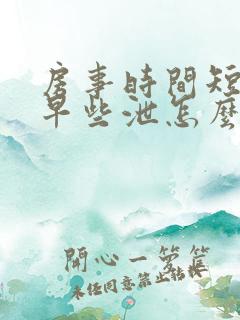 房事時間短
早些泄怎麼
開心一籮筐
未經同意禁止轉載